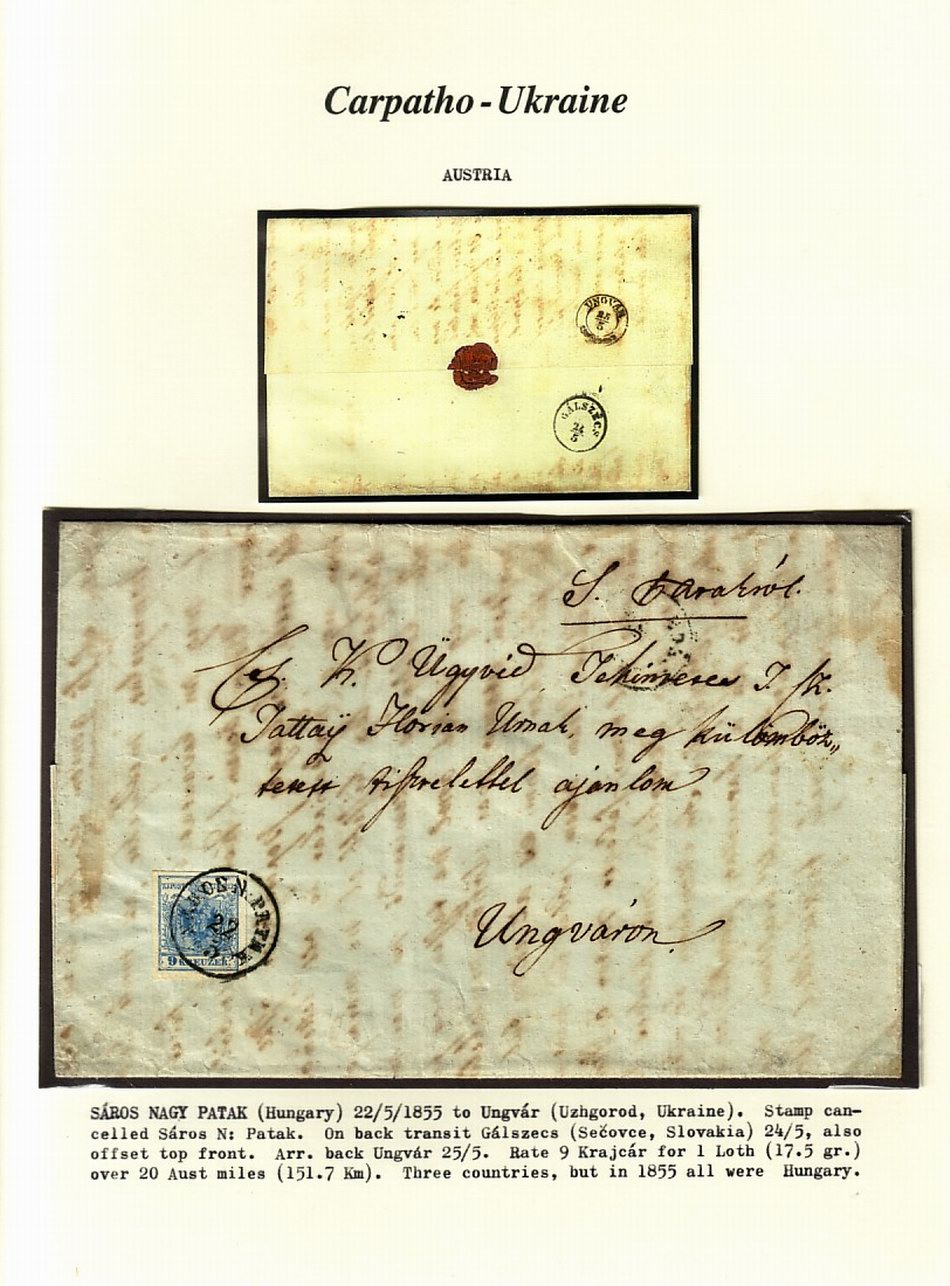 Carpatho - Ukraine
AUSTRIA
UNGVÁR
25
5
GÁLSZÉCS
24
5
S. Patakról.
Cs. K. Ügyvéd Tekintetes T. sz.
Tattay Florian Urnak, meg külömböz„
tetett tisztelettel ajanlom
SÁROS N. PATAK
22
5
9 KREUZER
Ungváron
SÁROS NAGY PATAK (Hungary) 22/5/1855 to Ungvár (Uzhgorod, Ukraine). Stamp can-
celled Sáros N: Patak. On back transit Gálszecs (Sečovce, Slovakia) 24/5, also
offset top front. Arr. back Ungvár 25/5. Rate 9 Krajcár for 1 Loth (17.5 gr.)
over 20 Aust miles (151.7 Km). Three countries, but in 1855 all were Hungary.